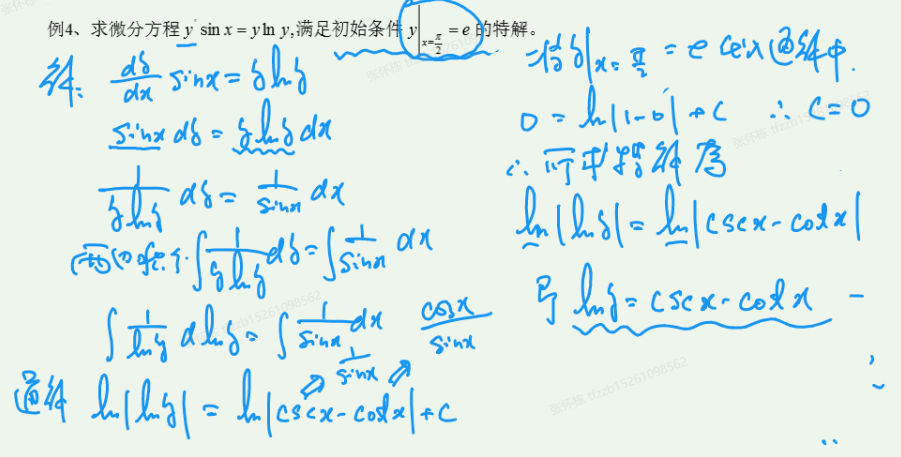 例4、求微分方程 y' sin x = y ln y, 满足初始条件 y|x=π/2 = e 的特解。
解: dy/dx sinx = y lny
sinx dy = y lny dx
1/(y lny) dy = 1/sinx dx
∫ 1/(y lny) dy = ∫ 1/sinx dx
∫ 1/lny d lny = ∫ 1/sinx dx
1/sinx cosx/sinx
通解 ln|lny| = ln|cscx - cotx| + C
y|x=π/2 = e 代入通解中.
0 = ln|1-0| + C ∴ C=0
∴ 所求特解为
ln|lny| = ln|cscx - cotx|
即 lny = cscx - cotx
张怀栋 tfzzb15261098562